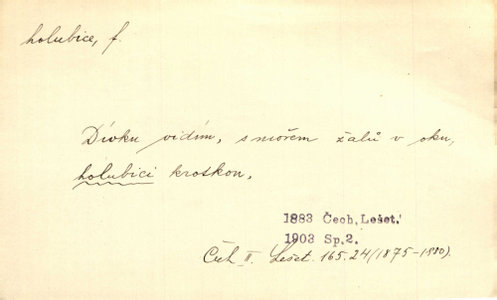 holubice, f.
Dívku vidím, s mořem žalů v oku,
holubici krotkou.
1883 Čech, Lešet.
1903 Sp.2.
Čch II. Lešet. 165.24 (1875-1880).